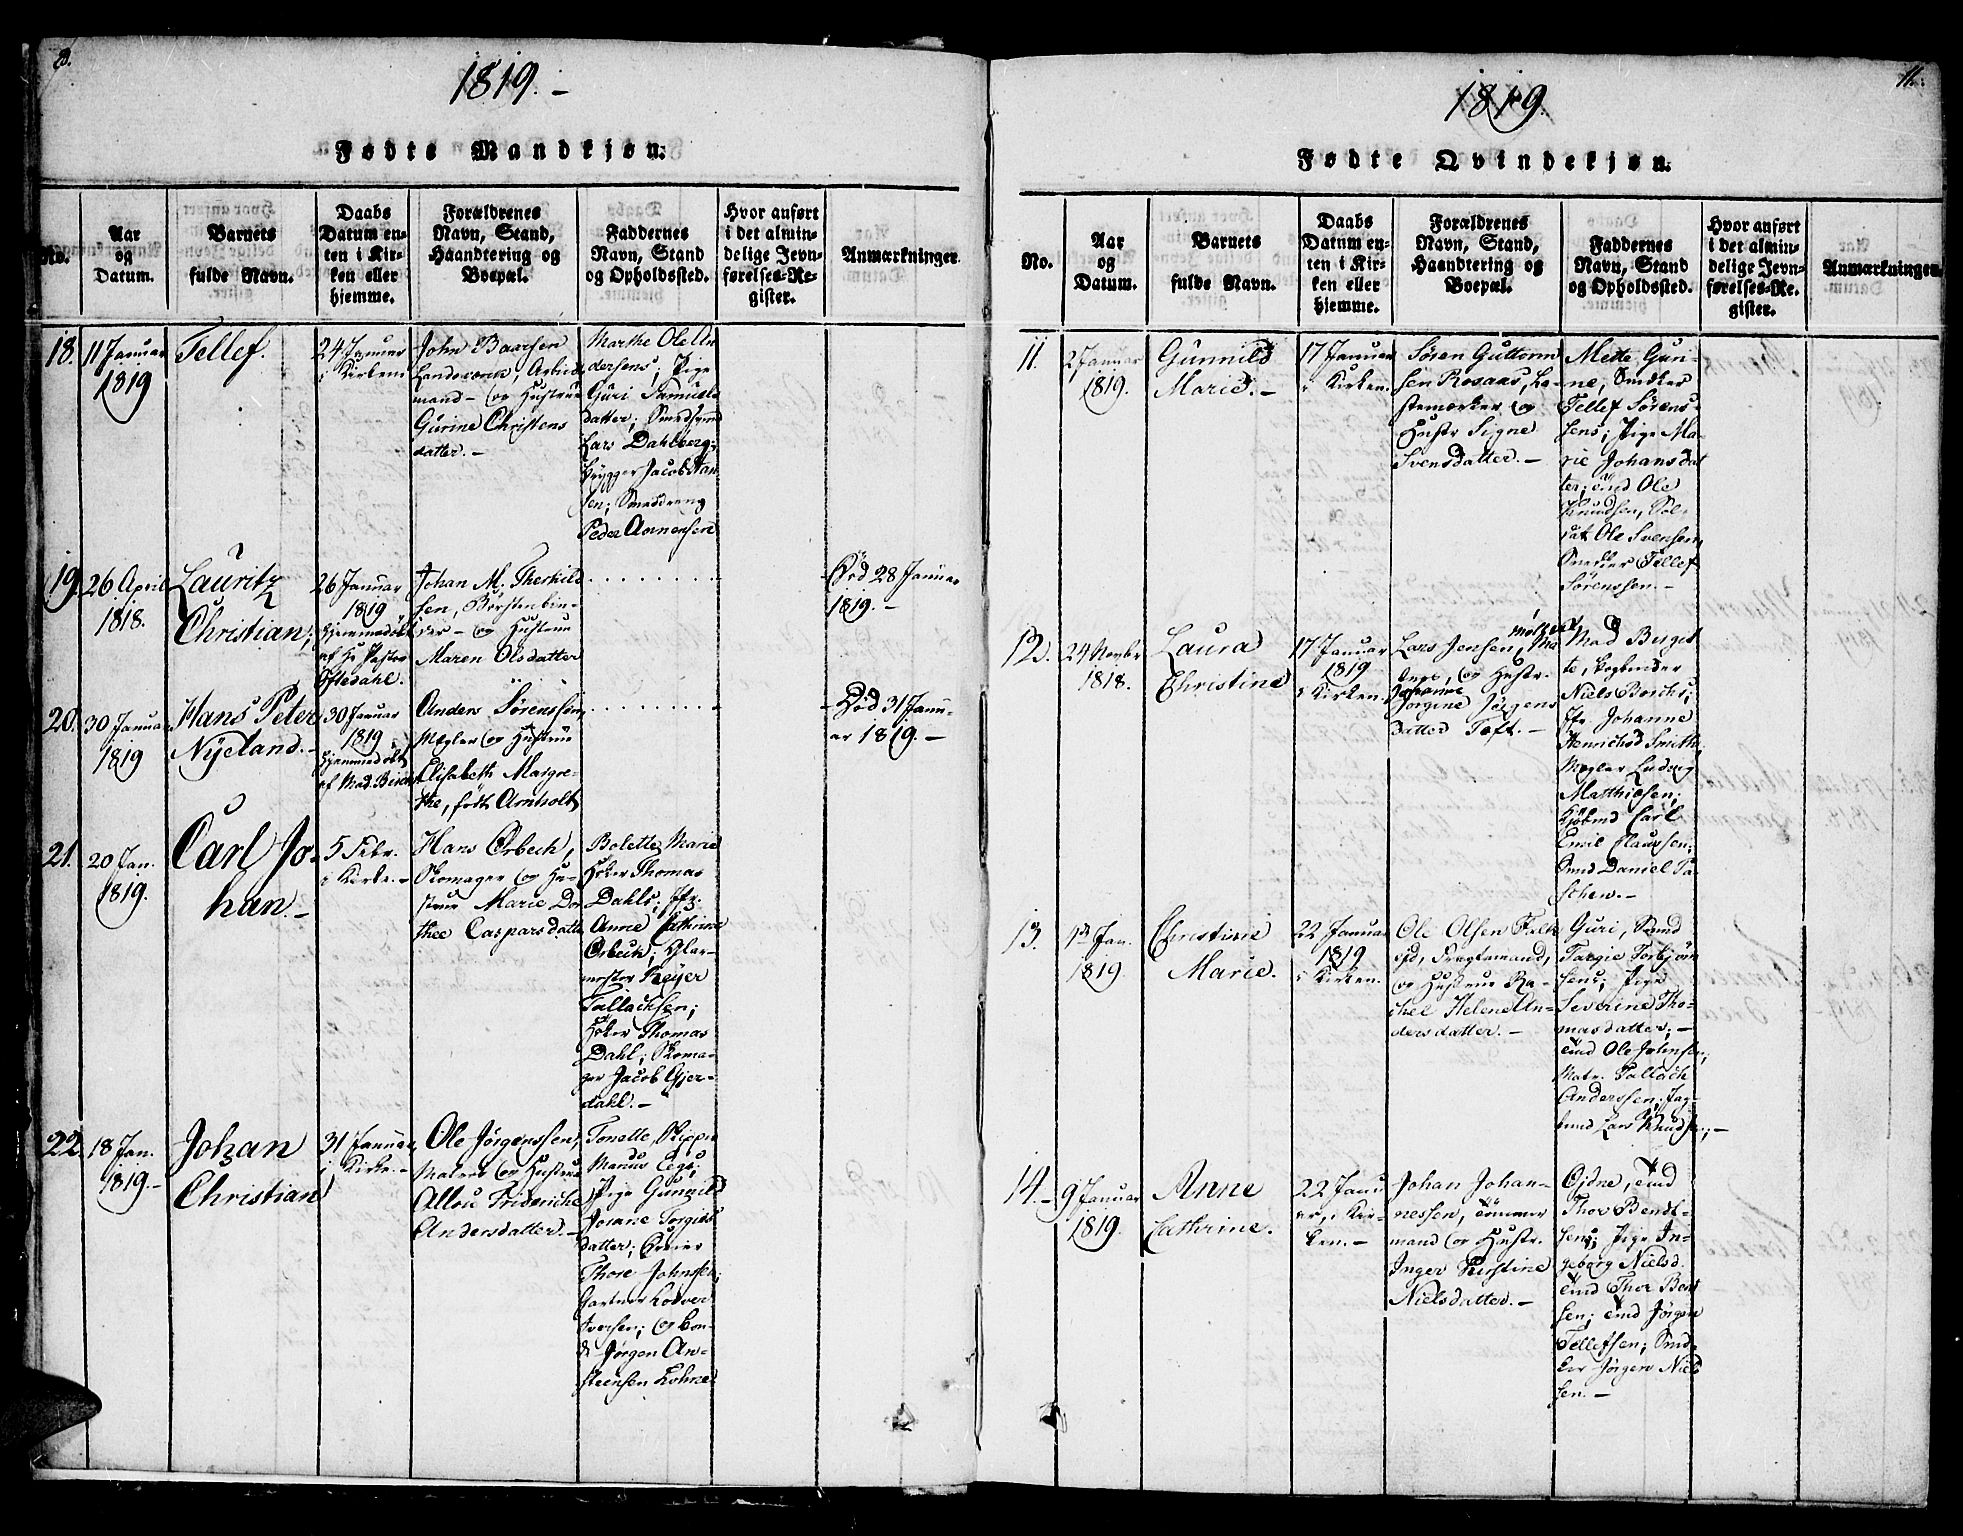 8.
1819. –
Fødte Mandkjøn.
No.
Aar og Datum.
Barnets fulde Navn.
Daabs Datum enten i Kirken eller hjemme.
Forældrenes Navn, Stand, Haandtering og Boepæl.
Faddernes Navn, Stand og Opholdssted.
Hvor anført i det almindelige Jevnførelses-Register.
Anmærkninger.
18.
11 Januar
1819
Tellef.
24 Januar
i Kirken
John Baarsen
mand – og Hustrue
Gurine Christens
datter. –
Marthe Ole An
dersens; Pige
Guri Samuels
datter;
Lars Dahlberg;
Brygger Jacob Han
sen; Smeddreng
Peder Aanensen
19.
26 April
1818.
Lauritz
Christian;
26 Januar
1819
hjemmedøbt
af Hr Pastor
Oftedahl.
Johan M. Therkild
sen, Børstenbin-
der – og Hustrue
Maren Olsdatter
Död 28 Januar
1819. –
20.
30 Januar
1819
Hans Peter
Nyeland. –
30 Januar
1819
hjemmedøbt
af Mad.
Anders Sörenssen,
Mægler og Hustrue
Elisabeth Margre-
the, født Arnholt
Död 31 Janu-
ar 1819. –
21.
20 Jan.
1819.
Carl Jo-
han. –
5 Febr.
i Kirke. –
Hans Orbech,
Skomager og Hu-
strue Marie Dor
thee Caspersdatter
Bolette Marie
Høker Thomas
Dahls; Jfr.
Anne Cathrine
Orbech; Glar-
mester Reyer
Tallachsen;
Høker Thomas
Dahl; Skoma-
ger Jacob Gjer-
dahl. –
22.
18 Jan.
1819. –
Johan
Christian
31 Januar,
i Kirke. –
Ole Jörgenssen,
Matros og Hustrue
Frideriche
Andersdatter. –
Tonette,
Pige Gunnild
Josane Torgius
datter;
Thore Johnssen;
Gartner
Iversen; og Bon-
de Jørgen An-
steensen
11.
1819.
Fødte Qvindekjøn.
No.
Aar og Datum.
Barnets fulde Navn.
Daabs Datum enten i Kirken eller hjemme.
Forældrenes Navn, Stand, Haandtering og Boepæl.
Faddernes Navn, Stand og Opholdssted.
Hvor anført i det almindelige Jevnførelses-Re. gister.
Anmærkninger.
11.
2 Januar
1819.
Gunnild
Marie. –
17 Januar
i Kirken.
Sören Guttorm
sen Rosaas,
og
Hustr Signe
Svensdatter. –
Mette Gun-
ne, Snedker
Tellef Sörens-
sens; Pige Ma-
rie Johansdat
ter; Ole
Knudsen, Sol-
dat Ole Svensen,
Snedker Tellef
Sörenssen. –
12.
24 Novbr
1818.
Laura
Christine
17 Januar
1819
i Kirken.
Lars Jensen,
og Hustr.
Johanne
Jorgine Jörgens
datter Toft. –
Mad Birget-
te, Bogbinder
Niels Borchs;
Jfr Johanne
Henrichsd Smith;
Mægler Ludvig
Matthiesen;
Kjøbmd Carl
Emil Claussen;
Smed Daniel Pa
schen. –
13.
1ste Jan.
1819.
Christine
Marie.
22 Januar
1819
i Kirken.
Ole Olsen
Fragtemand,
og Hustrue Ra-
chel Helene An-
dersdatter. –
Guri, Smed
Targie Torbjörn
sens; Pige
Severine Tho-
masdatter; –
Ole Johnsen,
Matr. Tallach
Anderssen;
Lars Knudsen. –
14. –
9 Januar
1819.
Anne
Cathrine.
22 Janu
ar, i Kir-
ken. –
Johan Johan-
nessen, Tömmer
mand og Hustr.
Inger Kirstine
Nielsdatter. –
Thor Bendt-
sens; Pige In-
geborg Nielsd.
Thor Bent
sen; Jörgen
Tellefsen; Sned-
ker Jörgen Niel
sen. –